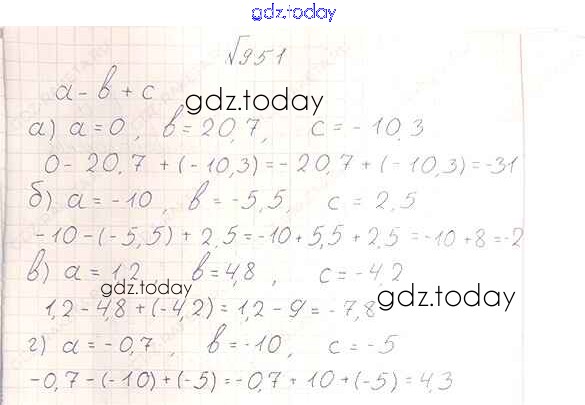 gdz.today
√951
а - в + с
gdz.today
а) а = 0, в = 20,7, с = -10,3
0 - 20,7 + (-10,3) = -20,7 + (-10,3) = -31
б) а = -10, в = -5,5, с = 2,5
-10 - (-5,5) + 2,5 = -10 + 5,5 + 2,5 = -10 + 8 = -2
в) а = 1,2 в = 4,8, с = -4,2
gdz.today
1,2 - 4,8 + (-4,2) = 1,2 - 9 = -7,8
gdz.today
г) а = -0,7, в = -10, с = -5
-0,7 - (-10) + (-5) = -0,7 + 10 + (-5) = 4,3